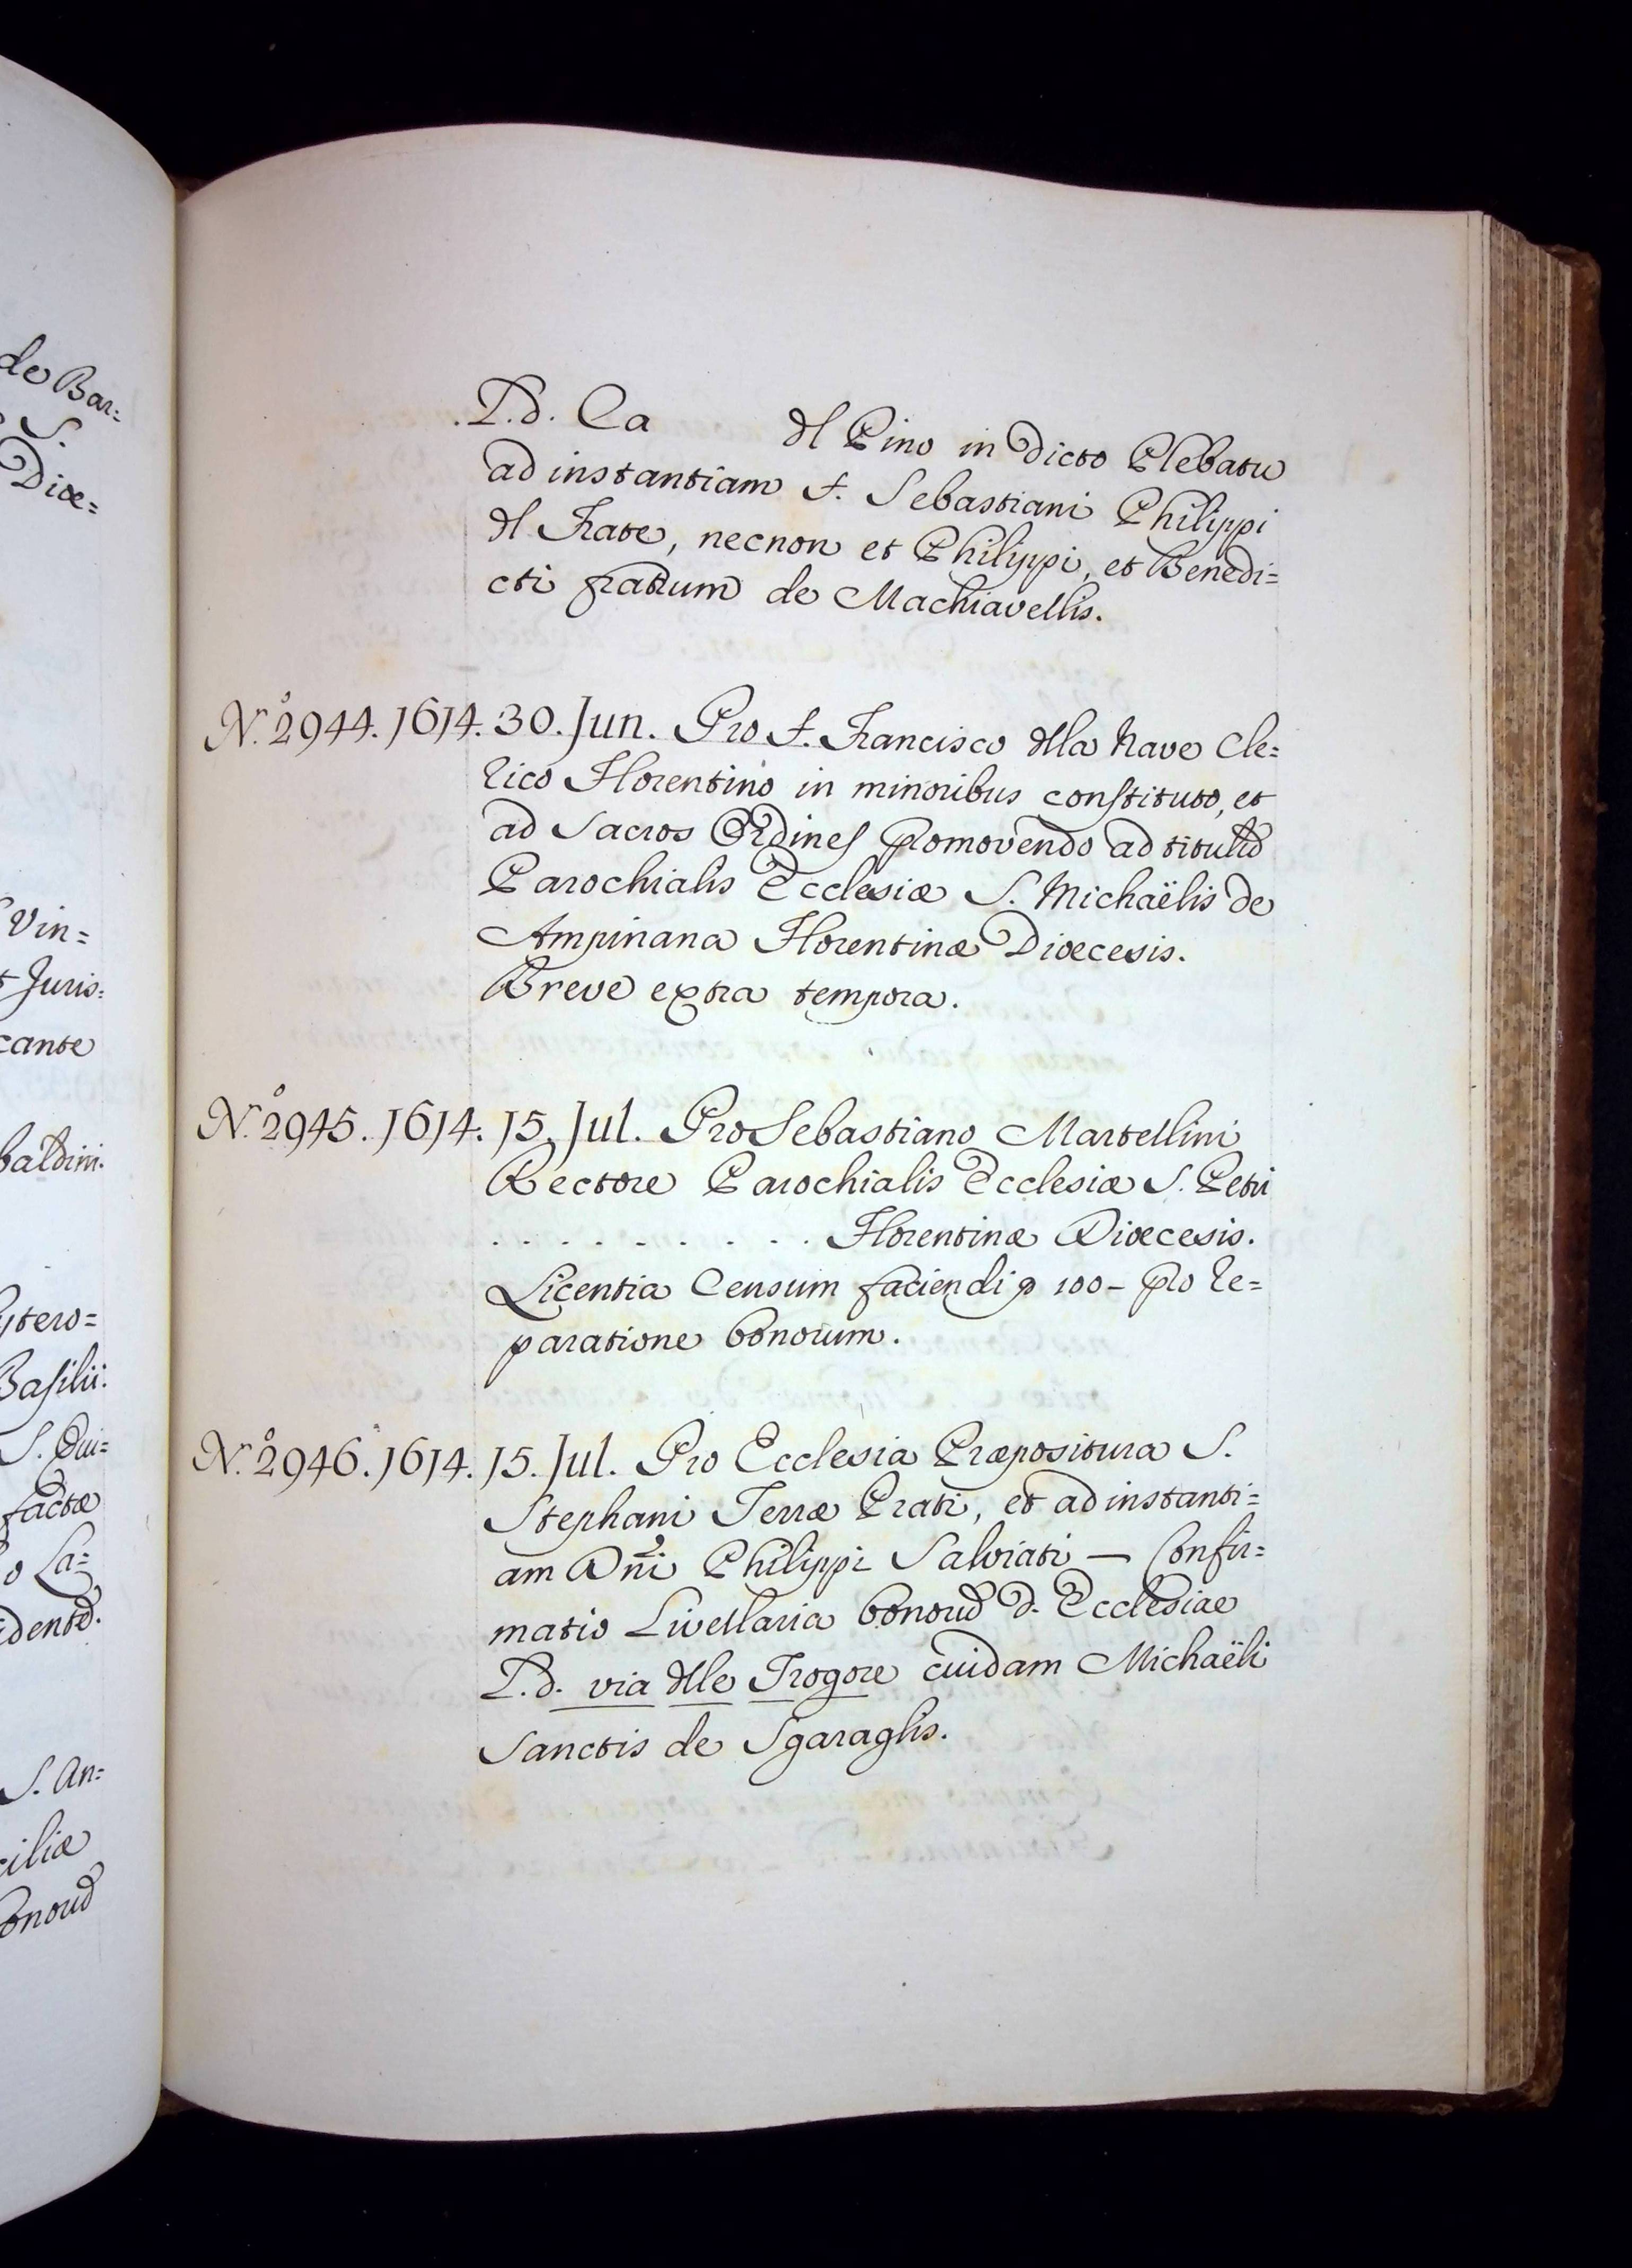 de Bar=
S.
Diœ=
Vin=
Juris=
cante
baldini.
ytero=
Basilii.
S. Qui=
factæ
o La=
identẽ.
S. An=
ciliæ
bonoruɜ
L.d. Ca dl Pino in dicto Plebatu
ad instantiam f. Sebastiani Philippi
dl Frate, necnon et Philippi, et Benedi=
cti fratrum de Machiavellis.
N.º 2944. 1614. 30. Jun. Pro f. Francisco dlla Nave Cle=
rico Florentino in minoribus constituto, et
ad Sacros Ordines promovendo ad titulũ
Parochialis Ecclesiæ S. Michaëlis de
Ampinana Florentinæ Diœcesis.
Breve extra tempora.
N.º 2945. 1614. 15. Jul. Pro Sebastiano Martellini
Rectore Parochialis Ecclesiæ S. Petri
. . . . . . . . . . Florentinæ Diœcesis.
Licentia Censum faciendi ꝑ 100 – pro re=
paratione bonorum.
N.º 2946. 1614. 15. Jul. Pro Ecclesia Præpositura S.
Stephani Terræ Prati, et ad instanti=
am Dñi Philippi Salviati – Confir=
matio Livellaria bonorũ d. Ecclesiae
L.d. via dlle Trogore cuidam Michaëli
Sanctis de Sgaraglis.